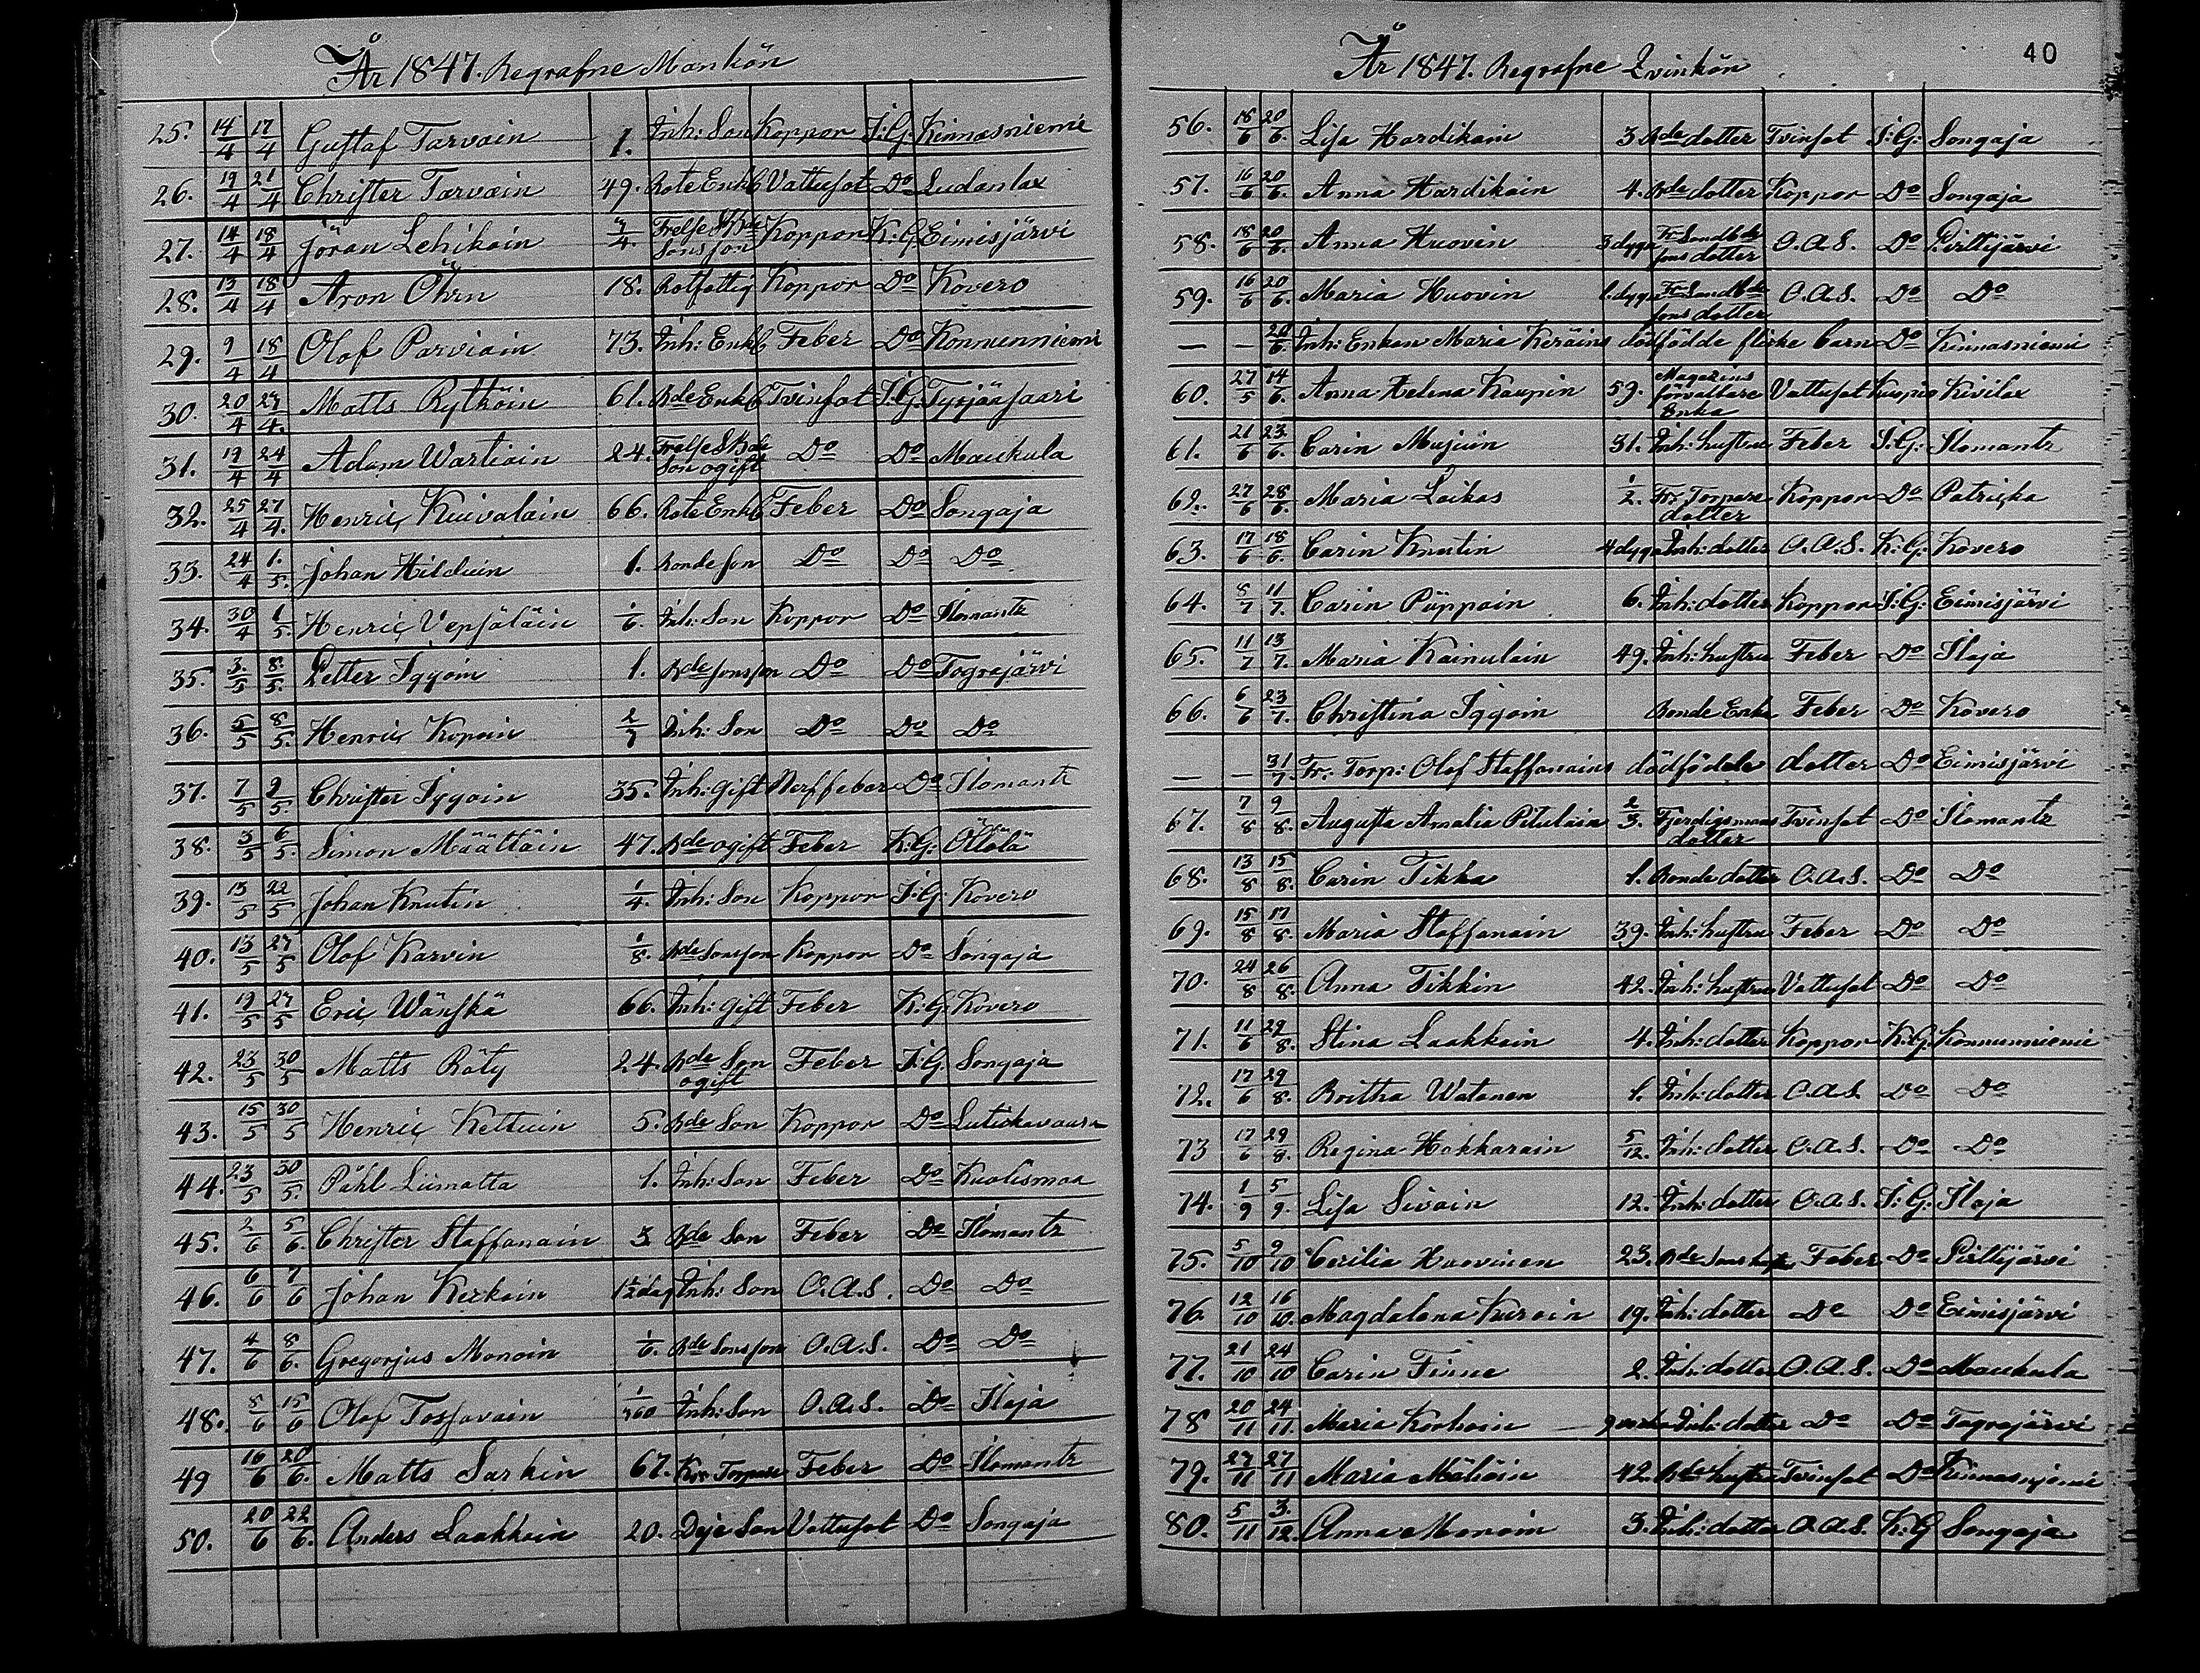 År 1847. Begrafne Mankön
25. 14/4 17/4 Gustaf Tarvain 1. Inh: Son Koppor I:G: Kinnasniemi
26. 19/4 21/4 Christer Tarvain 49. Rote Enkl Vattusot Do Ludanlax
27. 14/4 18/4 Jöran Lehikoin 3/4. Frelse SBde Sons son Koppor K:G Eimisjärvi
28. 13/4 18/4 Aron Öhrn 18. Rotfattig Koppor Do Kovero
29. 9/4 18/4 Olof Parviain 73. Inh: Enkl Feber Do Konnunniemi
30. 20/4 24/4. Matts Rytköin 61. Bde Enkl Tvinsot I:G: Tyrjäsaari
31. 19/4 24/4 Adam Wartiain 24. Frelse SBde Son ogift Do Do Maukula
32. 25/4 27/4. Henric Kiuvalain 66. Rote Enkl Feber Do Songaja
33. 24/4 1./5. Johan Hilduin 1. Bonde son Do Do Do
34. 30/4 1/5. Henric Vepsäläin 1/6. Inh: Son Koppor Do Ilomantz
35. 3./5 8./5. Petter Iggoin 1. Bde sonsson Do Do Togrejärvi
36. 5/5 8/5. Henric Kopoin 2/7 Inh: Son Do Do Do
37. 7/5 9/5. Christer Iggoin 35. Inh: gift Nerffeber Do Ilomantz
38. 3/5 6/5. Simon Määttäin 47. Bde ogift Feber K:G: Öllölä
39. 13/5 22/5 Johan Knutin 1/4. Inh: Son Koppor I:G: Kovero
40. 13/5 27/5 Olof Karvin 1/8. Bde Sonsson Koppor Do Songaja
41. 19/5 27/5 Eric Wänskä 66. Inh: gift Feber K:G: Kovero
42. 23/5 30/5 Matts Räty 24. Bde Son ogift Feber I:G. Songaja
43. 15/5 30/5 Henric Kettuin 5. Bde Son Koppor Do Lutickavaara
44. 23/5 30/5. Påhl Liimatta 1. Inh: Son Feber Do Kuolismaa
45. 2/6 5/6. Christer Staffanain 3 Bde Son Feber Do Ilomantz
46. 6/6 7/6 Johan Kerkoin 1½ dag Inh: Son O.A.S. Do Do
47. 4/6 8/6. Gregorjus Monoin 1/6. Bde Sonsson O.A.S. Do Do
48. 8/6 15/6 Olof Tossavain Inh: Son O.A.S. Do Ilaja
49 16/6 20/6. Matts Sarkin 67. Kro Torpare Feber Do Ilomantz
50. 20/6 22/6. Anders Laakkoin 20. Deje Son Vattusot Do Songaja
År 1847. Begrafne Qvinkön
40
56. 18/6 20/6. Lisa Hardikain 3 Bde dotter Tvinsot I:G: Songaja
57. 16/6 20/6. Anna Hardikain 4. Bde dotter Koppor Do Songaja
58. 18/6 20/6. Anna Huovin 3 dygn Fr. Sandbde sons dotter O.A.S. Do Pirttijärvi
59. 16/6 20/6. Maria Huovin 1. dygn Fr. Sandbde sons dotter O.A.S. Do Do
— — 20/6. Inh: Enkan Maria Keräins dödfödde flicke barn Do Kinnasniemi
60. 27/5 14/6. Anna Helena Kaupin 59. Magazins förvaltare Enka Vattusot Kuopio Kivilax
61. 21/6 23/6. Carin Mujuin 31. Inh: hustru Feber I:G: Ilomantz
62. 27/6 28/6. Maria Laikas 1/2. Fr. Torpare dotter Koppor Do Patricka
63. 17/6 18/6. Carin Knutin 4 dygn Inh: dotter O.A.S. K:G: Kovero
64. 8/7 11/7. Carin Piippoin 6. Inh: dotter Koppor I:G: Eimisjärvi
65. 11/7 13/7. Maria Kainulain 49. Inh: hustru Feber Do Ilaja
66. 6/6 23/7. Christina Iggoin Bonde Enka Feber Do Kovero
— — 31/7. Fr. Torp: Olof Staffanains dödfödde dotter Do Eimisjärvi
67. 7/8 9/8. Augusta Amalia Pitulain 2/3. Fjerdigsmans dotter Tvinsot Do Ilomantz
68. 13/8 15/8. Carin Tikka 1. Bonde dotter O.A.S. Do Do
69. 15/8 17/8. Maria Staffanain 39. Inh: hustru Feber Do Do
70. 24/8 26/8. Anna Tikkin 42. Inh: hustru Vattusot Do Do
71. 11/6 29/8. Stina Laakkoin 4. Inh: dotter Koppor K:G: Konnunniemi
72. 17/6 29/8. Britha Watanen 1. Inh: dotter O.A.S. Do Do
73 17/6 29/8. Regina Hokkarain 5/12. Inh: dotter O.A.S. Do Do
74. 1/9 5/9. Lisa Sivoin 12. Inh: dotter O.A.S. I:G: Ilaja
75. 5/10 9/10 Cecilia Huovinen 23. Bde Feber Do Pirttijärvi
76 12/10 16/10. Magdalena Kuroin 19. Inh: dotter Do Do Eimisjärvi
77. 21/10 24/10 Carin Finne 2. Inh: dotter O.A.S. Do Maukula
78 20/11 24/11. Maria Korhoin Inh: dotter Do Do Togrejärvi
79. 27/11 27/11 Maria Mähöin 42. Bde hustru Tvinsot Do Kinnasnjemi
80. 5/11 3./12. Anna Monoin 3. Inh: dotter O.A.S. K:G Songaja